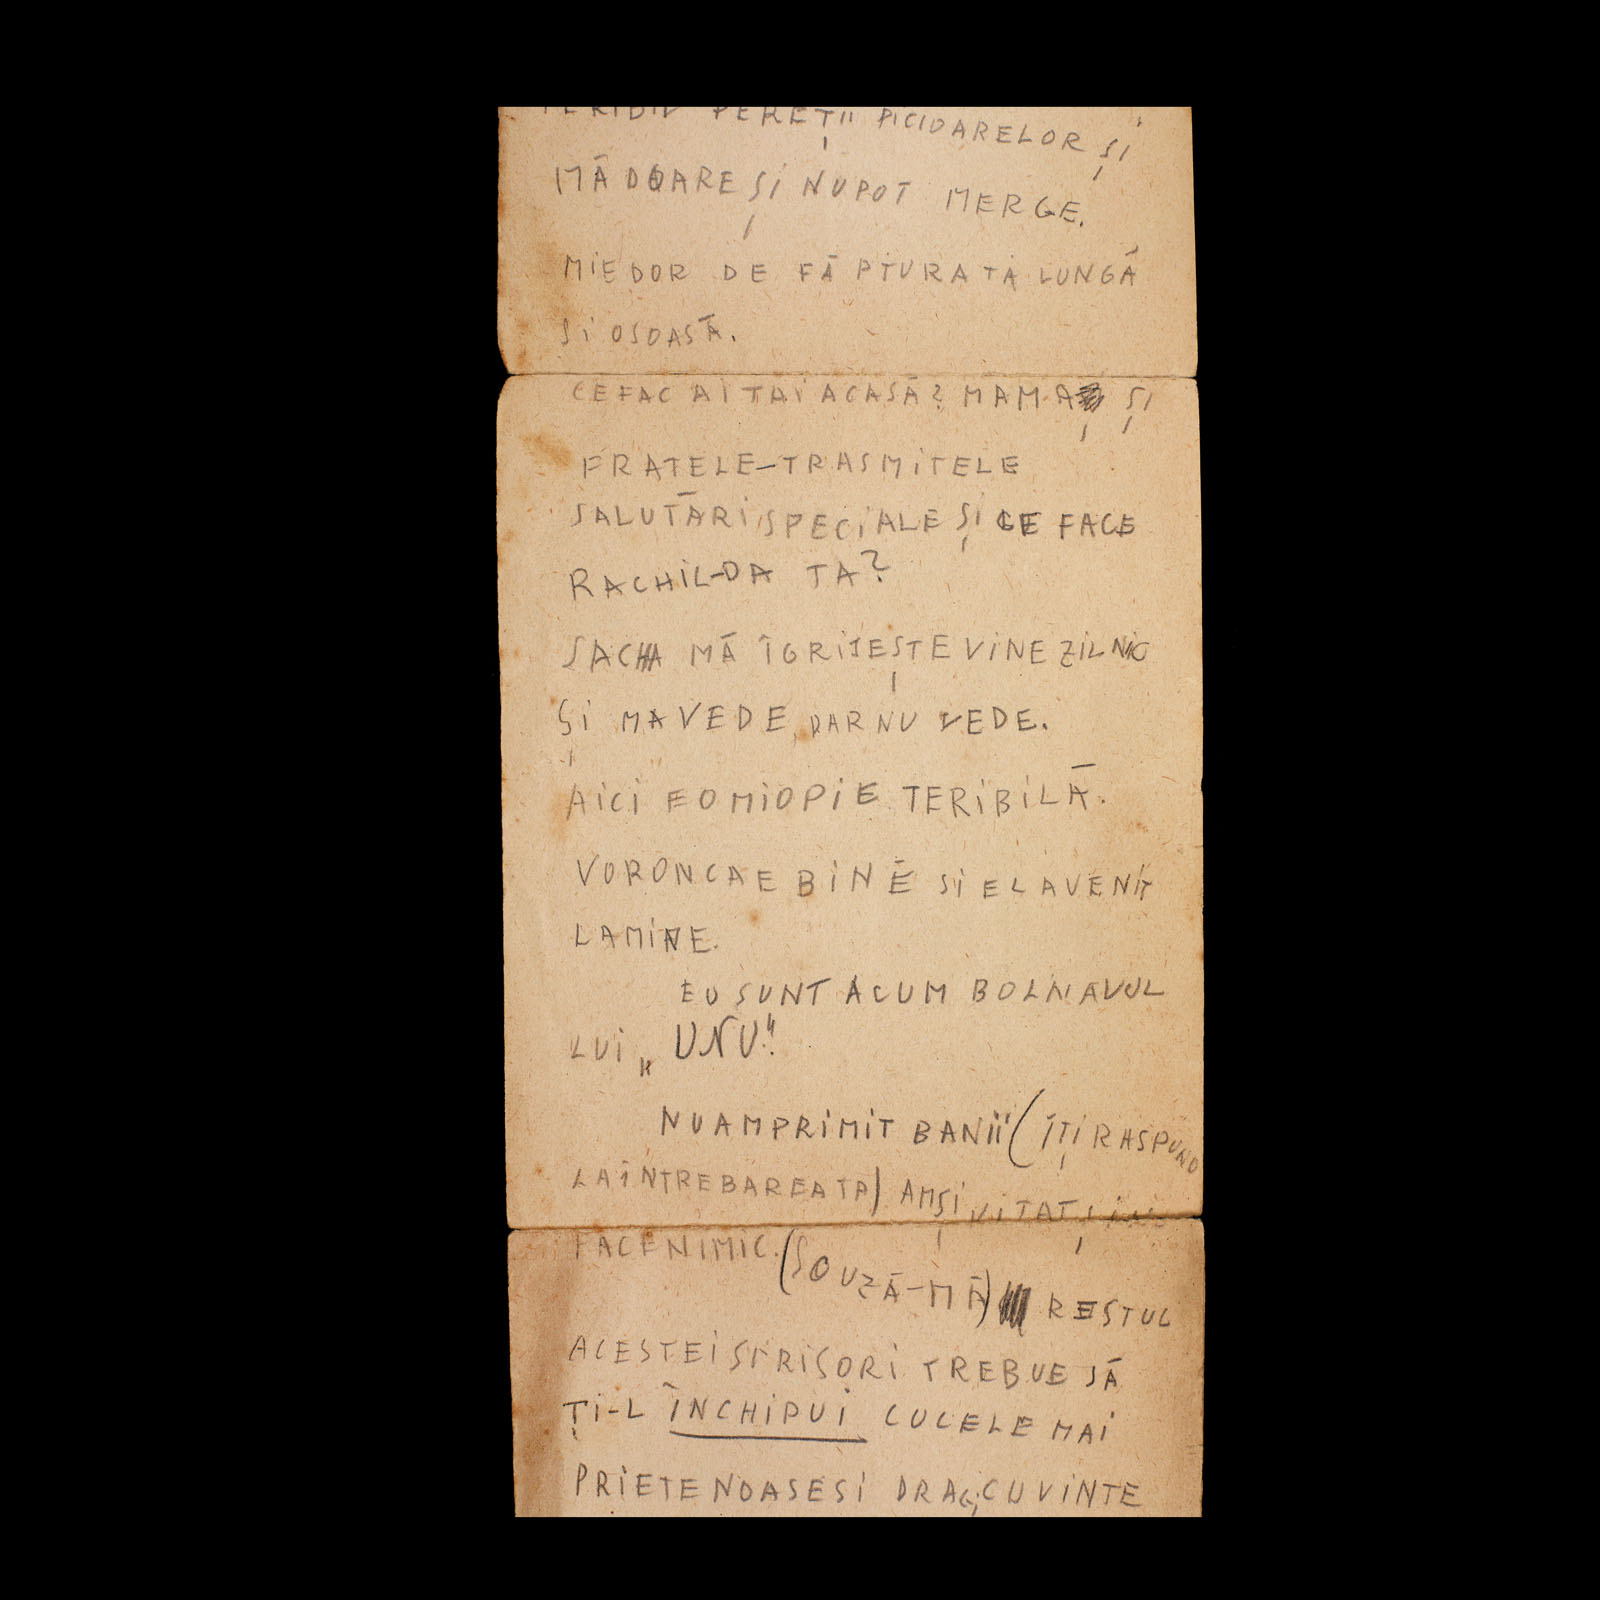 PEREȚII PICIOARELOR ȘI
MĂ DOARE ȘI NU POT MERGE.
MI E DOR DE FĂPTURA TA LUNGĂ
SI OSOASĂ.
CE FAC AI TĂI ACASĂ? MAMA ȘI
FRATELE–TRASMITELE
SALUTĂRI SPECIALE ȘI CE FACE
RACHIL-DA TA?
SACHA MĂ ÎGRIJEȘTE VINE ZILNIC
ȘI MA VEDE, DAR NU VEDE.
AICI E O MIOPIE TERIBILĂ.
VORONCA E BINE SI EL A VENIT
LA MINE.
EU SUNT ACUM BOLNAVUL
LUI „UNU".
NU AM PRIMIT BANII (ÎȚI RASPUND
LA ÎNTREBAREA TA) AM ȘI UITAT
FACE NIMIC. (SCUZĂ-MĂ) RESTUL
ACESTEI SCRISORI TREBUE SĂ
ȚI-L ÎNCHIPUI CU CELE MAI
PRIETENOASE SI DRAGI CUVINTE